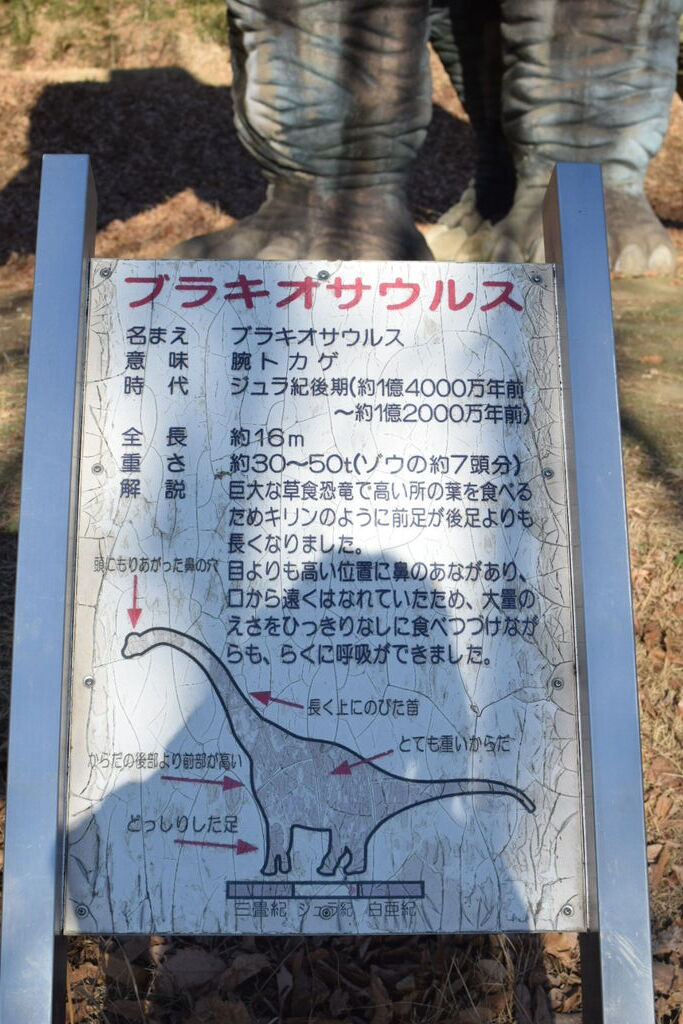 ブラキオサウルス
名まえ ブラキオサウルス
意味 腕トカゲ
時代 ジュラ紀後期(約1億4000万年前
～約1億2000万年前)
全長 約16m
重さ 約30～50t(ゾウの約7頭分)
解説 巨大な草食恐竜で高い所の葉を食べる
ためキリンのように前足が後足よりも
長くなりました。
目よりも高い位置に鼻のあながあり、
口から遠くはなれていたため、大量の
えさをひっきりなしに食べつづけなが
らも、らくに呼吸ができました。
頭にもりあがった鼻の穴
長く上にのびた首
とても重いからだ
からだの後部より前部が高い
どっしりした足
三畳紀 ジュラ紀 白亜紀